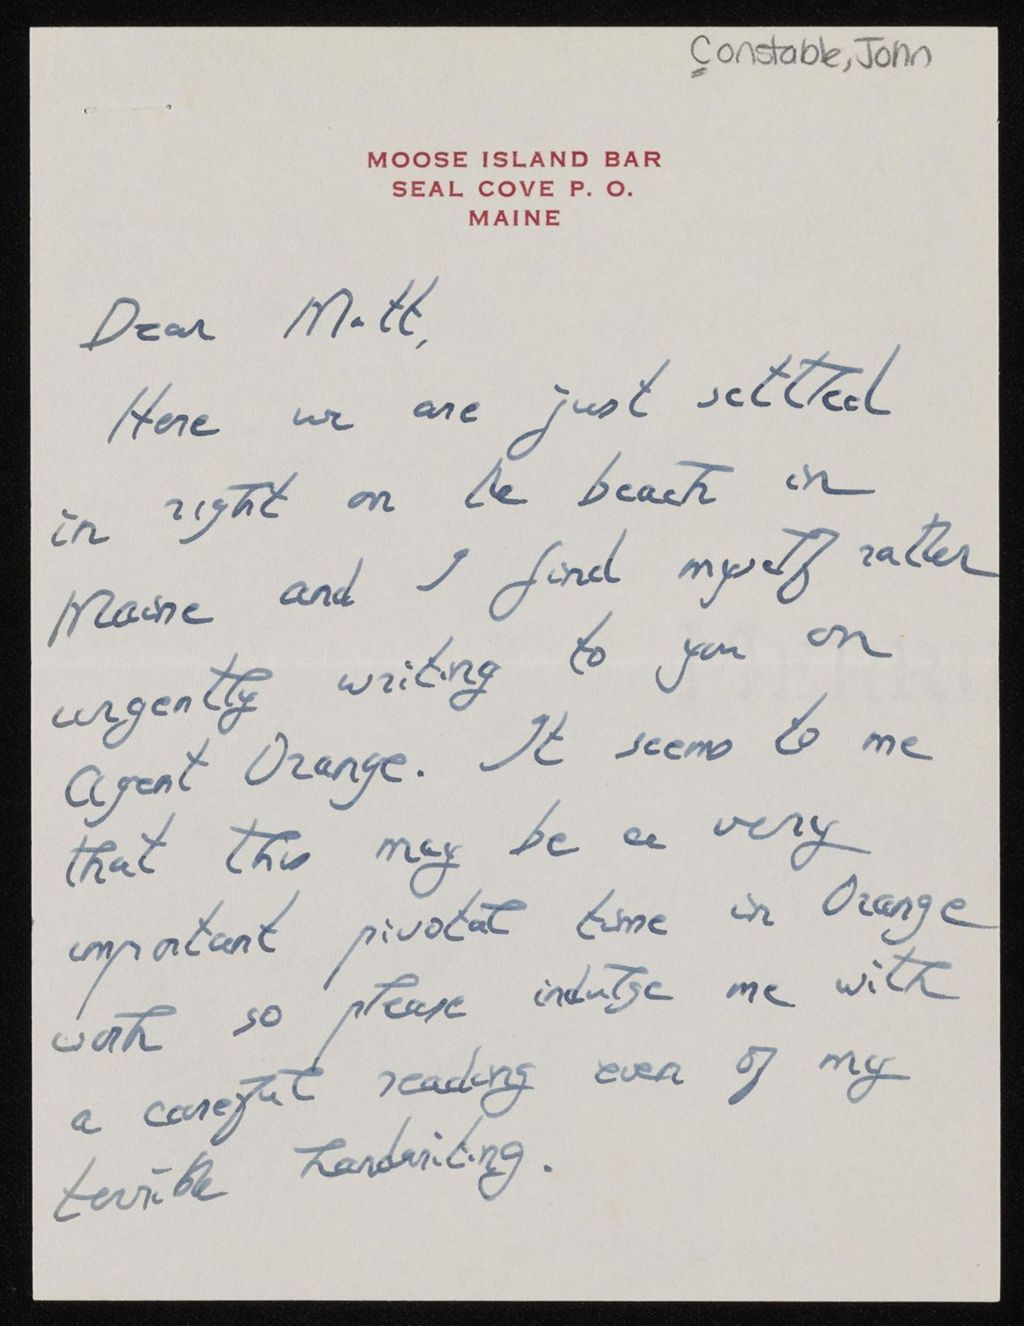 Constable, John
MOOSE ISLAND BAR
SEAL COVE P. O.
MAINE
Dear Matt,
Here we are just settled
in right on the beach in
Maine and I find myself rather
urgently writing to you on
Agent Orange. It seems to me
that this may be a very
important pivotal time in Orange
work so please indulge me with
a careful reading even of my
terrible handwriting.